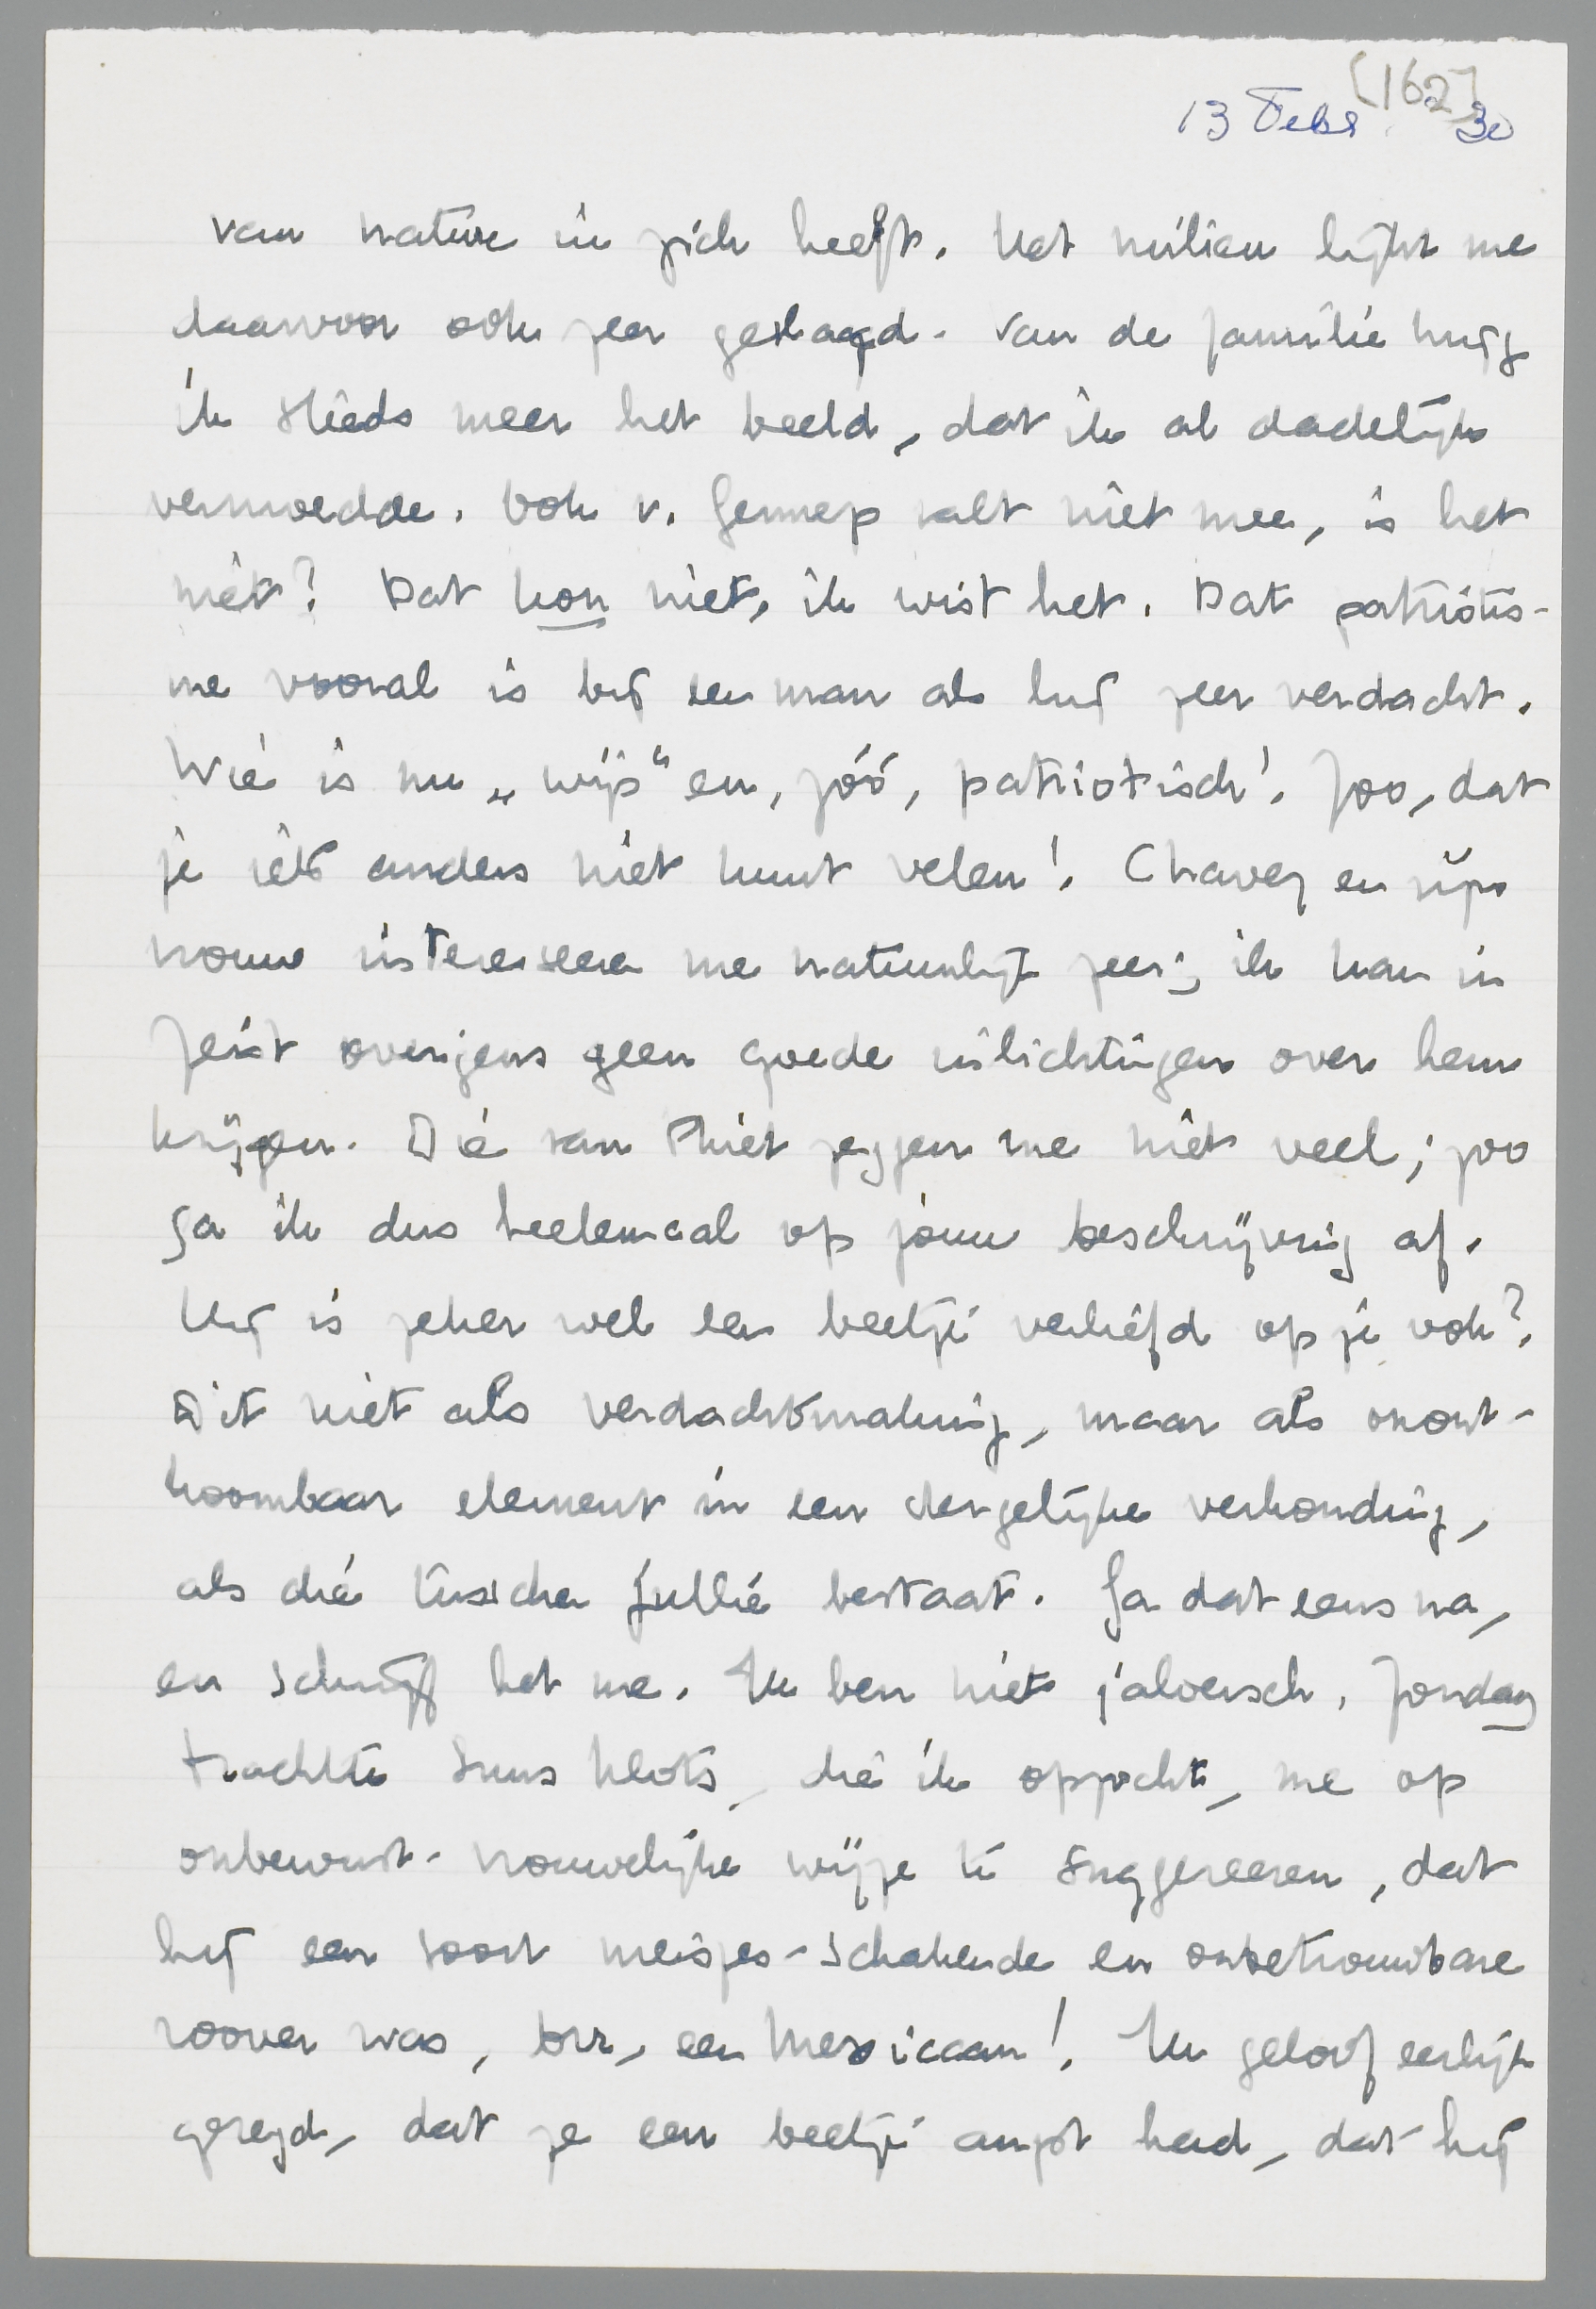 [162]
13 Febr. 30
van nature in zich heeft. Het milieu lijkt me
daarvoor ook zeer geslaagd. Van de familie krijg
ik steeds meer het beeld, dat ik al dadelijk
vermoedde. Ook v. Gennep valt niet mee, is het
niet? Dat kon niet, ik wist het. Dat patriotis-
me vooral is bij een man als hij zeer verdacht.
Wie is nu „wijs" en, zóó, patriotisch! Zoo, dat
je iets anders niet kunt velen! Chavez en zijn
vrouw interesseeren me natuurlijk zeer; ik kan in
Zeist overigens geen goede inlichtingen over hem
krijgen. Die van Phiet zeggen me niet veel; zoo
ga ik dus heelemaal op jouw beschrijving af.
Hij is zeker wel een beetje verliefd op je ook?
Dit niet als verdachtmaking, maar als onont-
koombaar element in een dergelijke verhouding,
als die tusschen jullie bestaat. Ga dat eens na,
en schrijf het me. Ik ben niet jaloersch. Zondag
trachtte Suus Kloots, die ik opzocht, me op
onbewust-vrouwelijke wijze te suggereeren, dat
hij een soort meisjes-schakende en onbetrouwbare
roover was, brr, een Mexicaan! Ik geloof eerlijk
gezegd, dat ze een beetje angst had, dat hij